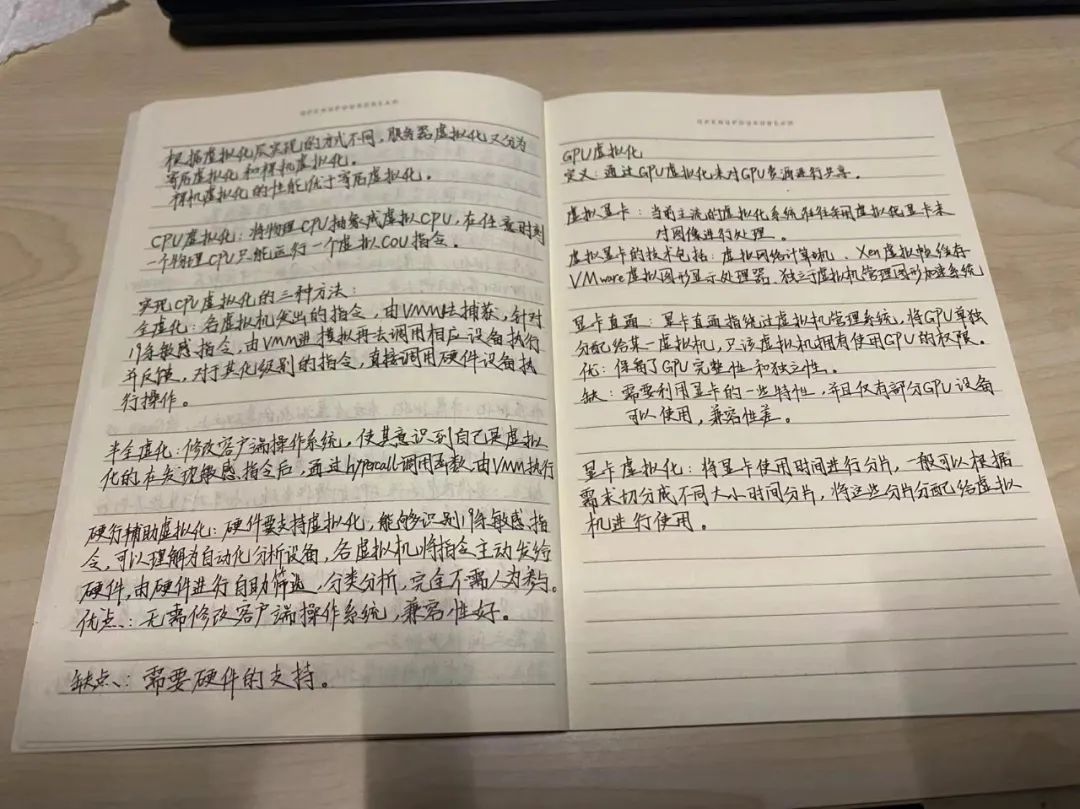 根据虚拟化层实现的方式不同，服务器虚拟化又分为
寄居虚拟化和裸机虚拟化。
裸机虚拟化的性能优于寄居虚拟化。
CPU虚拟化：将物理CPU抽象成虚拟CPU，在任意时刻
一个物理CPU只能运行一个虚拟COU指令。
实现CPU虚拟化的三种方法：
全虚化：各虚拟机发出的指令，由VMM去捕获，针对
19条敏感指令，由VMM进模拟再去调用相应设备执行
并反馈，对于其他级别的指令，直接调用硬件设备执
行操作。
半全虚化：修改客户端操作系统，使其意识到自己是虚拟
化的在发现敏感指令后，通过hypercall调用函数，由VMM执行
硬行辅助虚拟化：硬件要支持虚拟化，能够识别19条敏感指
令，可以理解为自动化分析设备，各虚拟机将指令主动发给
硬件，由硬件进行自助筛选，分类分析，完全不需人为参与。
优点：无需修改客户端操作系统，兼容性好。
缺点：需要硬件的支持。
GPU虚拟化
定义：通过GPU虚拟化来对GPU资源进行共享。
虚拟显卡：当前主流的虚拟化系统往往采用虚拟化显卡来
对图像进行处理。
虚拟显卡的技术包括：虚拟网络计算机、Xen虚拟帧缓存
VMware虚拟图形显示处理器、独立于虚拟机管理图形加速系统
显卡直通：显卡直通指绕过虚拟机管理系统，将GPU单独
分配给某一虚拟机，只该虚拟机拥有使用GPU的权限。
优：保留了GPU完整性和独立性。
缺：需要利用显卡的一些特性，并且仅有部分GPU设备
可以使用，兼容性差。
显卡虚拟化：将显卡使用时间进行分片，一般可以根据
需求切分成不同大小时间分片，将这些分片分配给虚拟
机进行使用。